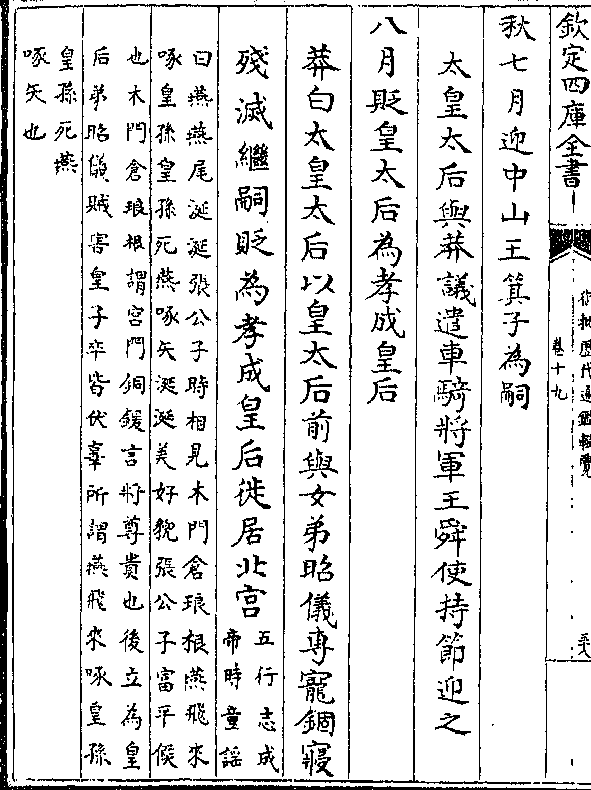 欽定四庫全書
御批歷代通鑑輯覽
卷十九
秋七月迎中山王箕子為嗣
太皇太后與莽議遣車騎將軍王舜使持節迎之
八月貶皇太后為孝成皇后
莽白太皇太后以皇太后前與女弟昭儀專寵錮寢
殘滅繼嗣貶為孝成皇后徙居北宮
五行志成
帝時童謠
曰燕燕尾涎涎張公子時相見木門倉琅根燕飛來
啄皇孫皇孫死燕啄矢涎涎美好貌張公子富平侯
也木門倉琅根謂宮門銅鍰言將尊貴也後立為皇
后弟昭儀賊害皇子卒皆伏辜所謂燕飛來啄皇孫
皇孫死燕
啄矢也